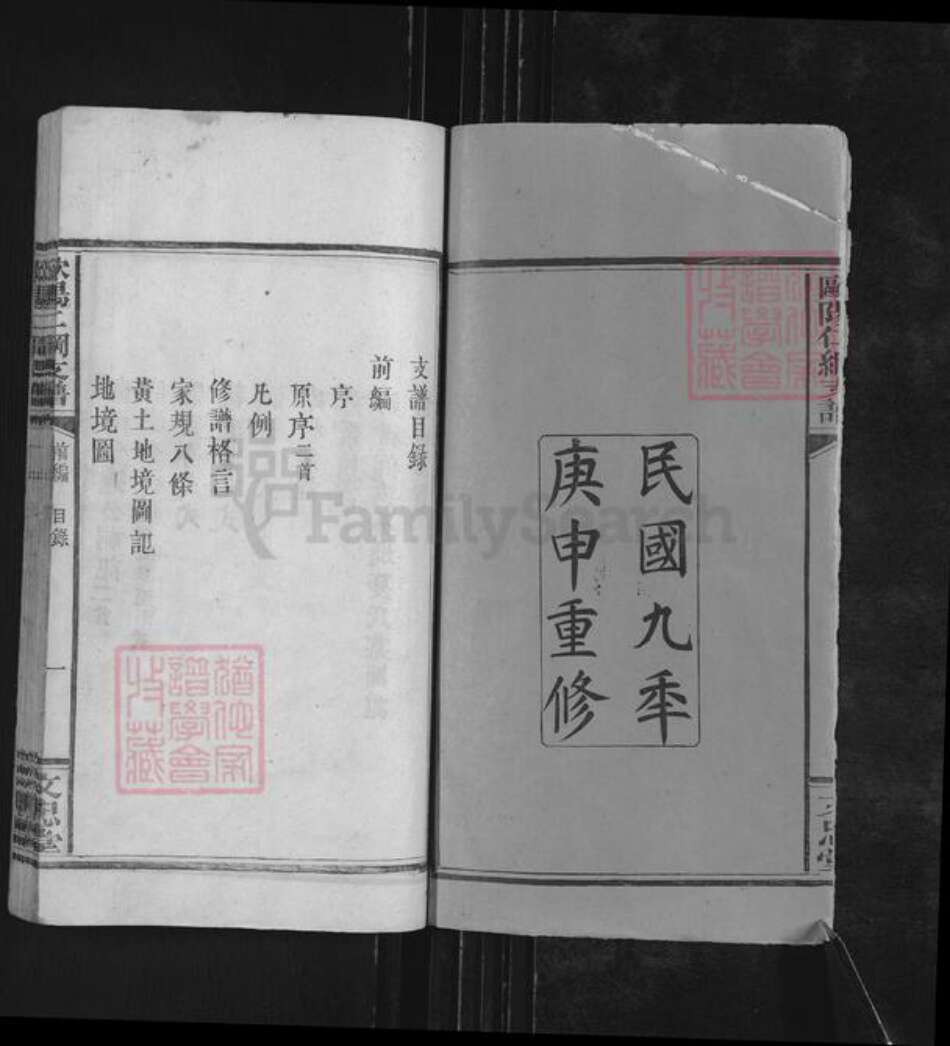 民國九年
庚申重修
支譜目錄
前編
序
原序二首
凡例
修譜格言
家規八條
黃土地境圖記
地境圖
前編
目錄
一
文思堂
譜學會
收藏
譜學會
收藏
FamilySearch